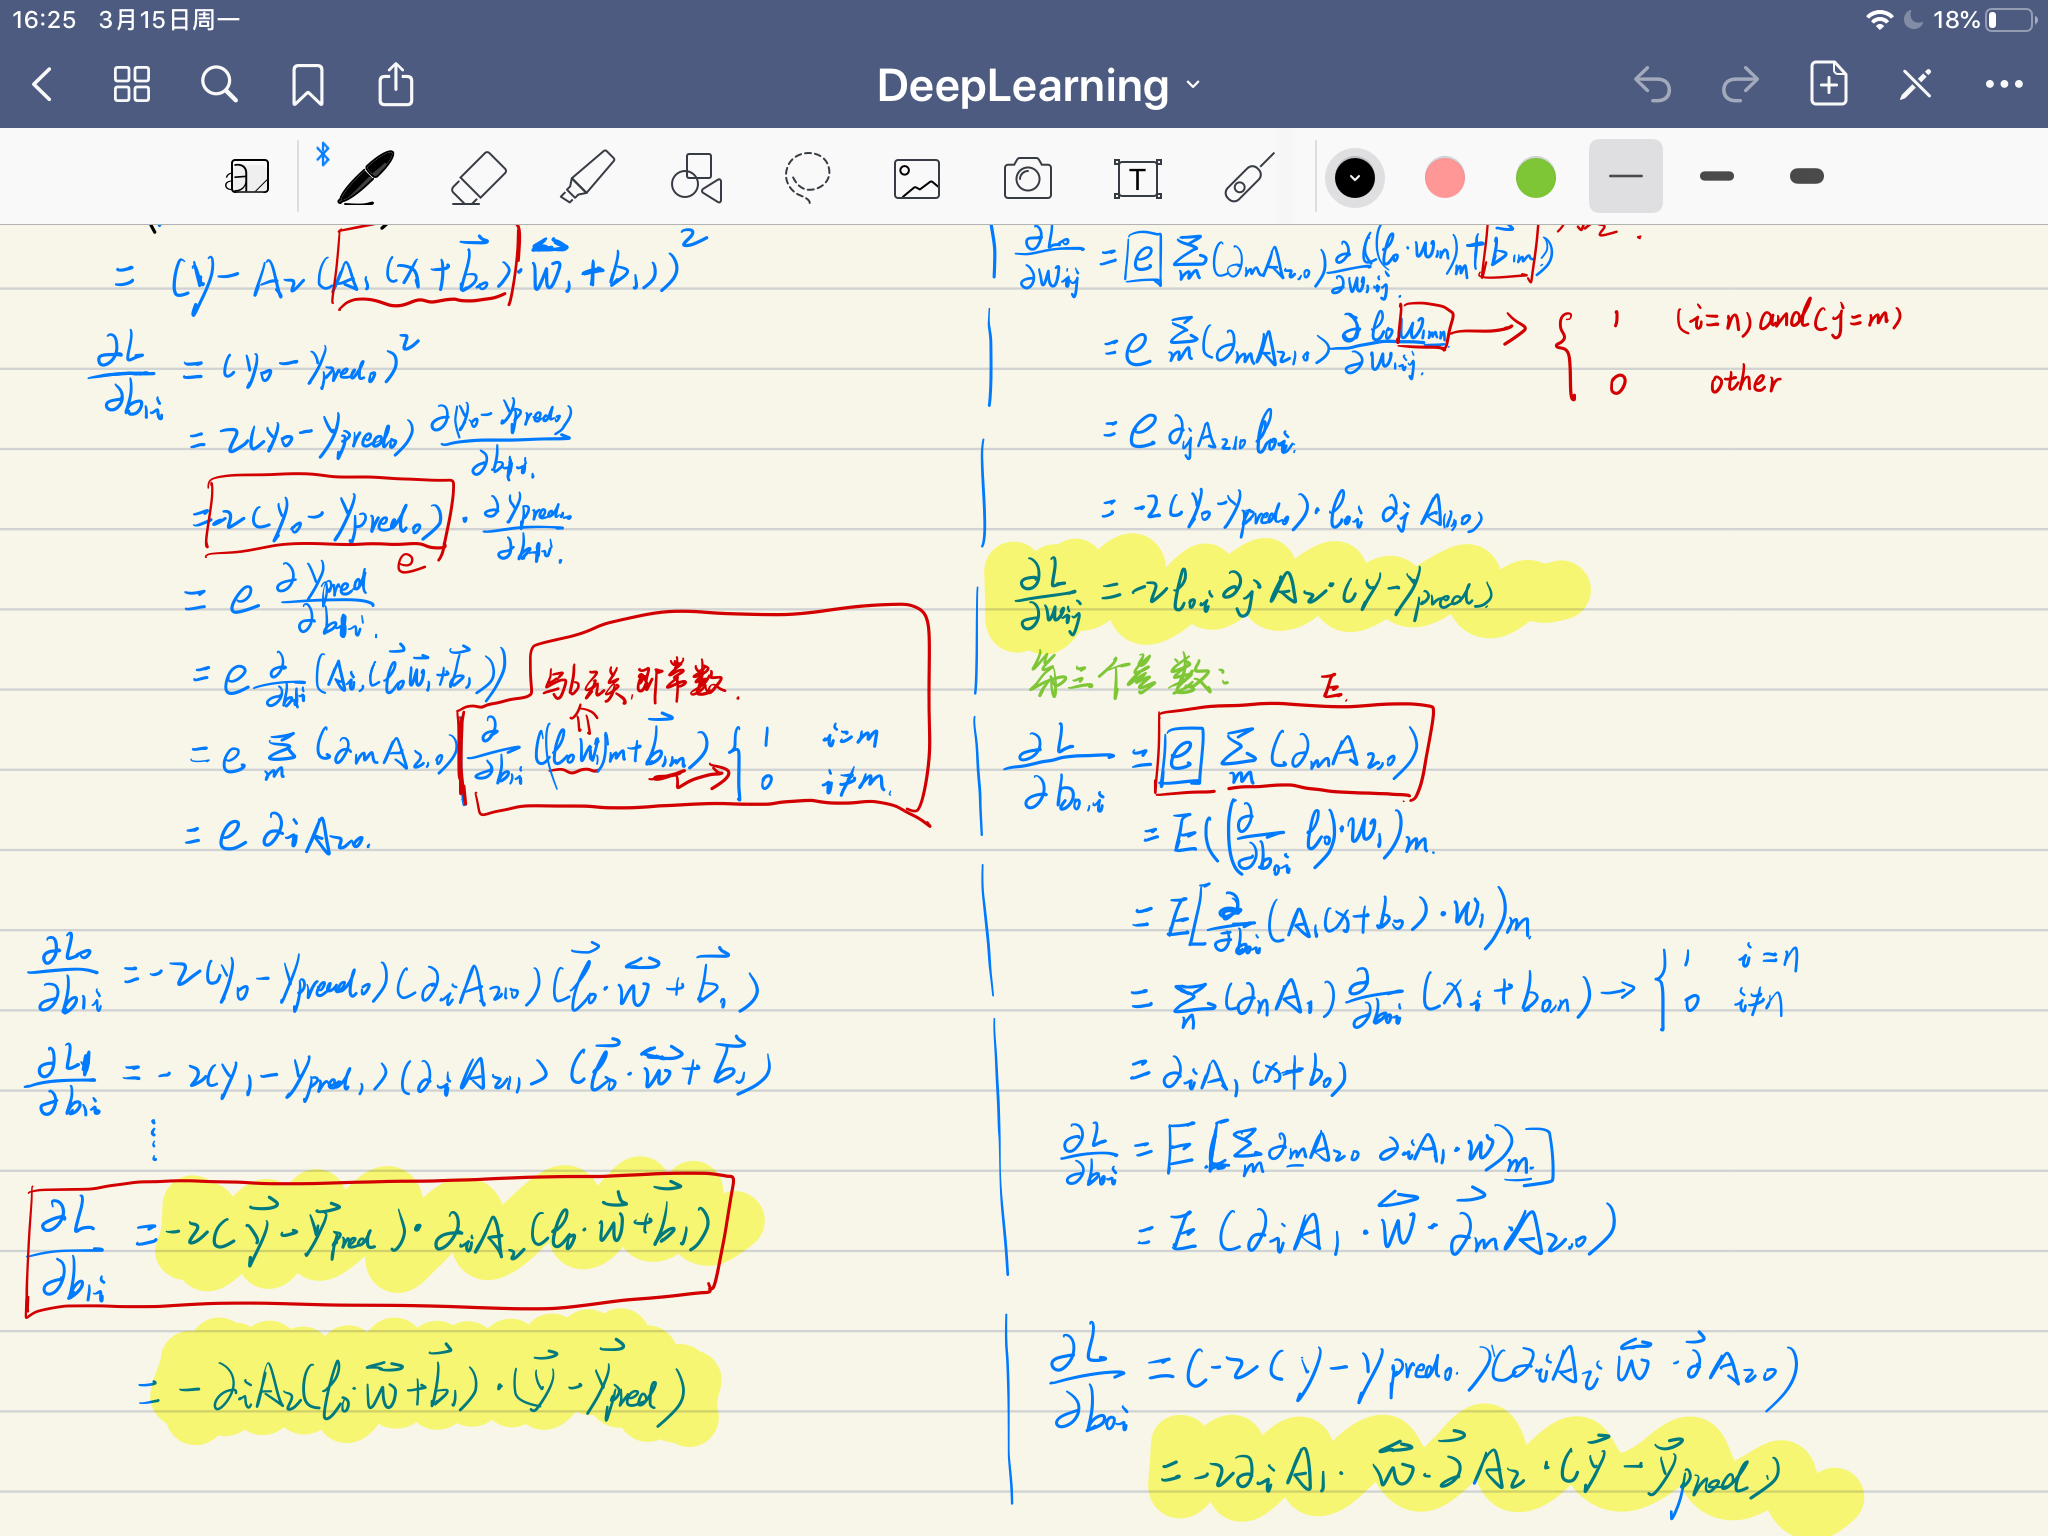 16:25 3月15日周一
18%
DeepLearning
T
= (y - A₂(A₁(x+b⃗₀)·w⃡₁+b₁))²
∂L/∂b₁ᵢ = (y₀ - y_pred₀)²
= 2(y₀ - y_pred₀) ∂(y₀ - y_pred₀)/∂b₁ᵢ.
= -2(y₀ - y_pred₀) · ∂y_pred₀/∂b₁ᵢ.
e
= e ∂y_pred/∂b₁ᵢ.
= e ∂/∂b₁ᵢ (A₁,(l⃗₀w⃗₁+b⃗₁))
与b无关,即常数.
= e Σₘ (∂ₘA₂,₀) ∂/∂b₁ᵢ ((l₀w₁)ₘ+b⃗₁,ₘ) { 1 i=m
0 i≠m.
= e ∂ᵢA₂₀.
∂L₀/∂b₁ᵢ = -2(y₀ - y_pred₀)(∂ᵢA₂,₀)(l⃗₀·w⃡+b⃗₁)
∂L₁/∂b₁ᵢ = -2(y₁ - y_pred,₁)(∂ᵢA₂,₁)(l⃗₀·w⃡+b⃗₁)
⋮
∂L/∂b₁ᵢ = -2(y⃗ - y⃗_pred)·∂ᵢA₂(l₀·w⃗+b⃗₁)
= -∂ᵢA₂(l₀·w⃡+b⃗₁)·(y⃗ - y⃗_pred)
∂L₀/∂wᵢⱼ = e Σₘ(∂ₘA₂,₀) ∂((l₀·w₁ₙ)ₘ+b₁ₘ)/∂w₁ᵢⱼ
= e Σₘ(∂ₘA₂,₀) ∂l₀w₁ₘₙ/∂w₁ᵢⱼ. → { 1 (i=n) and (j=m)
0 other
= e ∂ⱼA₂,₀ l₀ᵢ.
= -2(y₀ - y_pred₀)·l₀ᵢ ∂ⱼA₍₁,₀₎
∂L/∂wᵢⱼ = -2l₀,ᵢ ∂ⱼA₂·(y - y_pred)
第三个参数:
E.
∂L/∂b₀,ᵢ = e Σₘ(∂ₘA₂,₀)
= E((∂/∂b₀ᵢ l₀)·w₁)ₘ.
= E[∂/∂b₀ᵢ (A₁(x+b₀)·w₁)ₘ
= Σₙ(∂ₙA₁) ∂/∂b₀ᵢ (xᵢ+b₀,ₙ) → { 1 i=n
0 i≠n
= ∂ᵢA₁(x+b₀)
∂L/∂b₀ᵢ = E[Σₘ ∂ₘA₂₀ ∂ᵢA₁·w)ₘ.]
= E(∂ᵢA₁·w⃡·∂⃗ₘA₂,₀)
∂L/∂b₀ᵢ = (-2(y - y_pred₀.)(∂ᵢAᵢ w⃡·∂⃗A₂₀)
= -2∂ᵢA₁·w⃡·∂⃗A₂·(y⃗ - y⃗_pred)